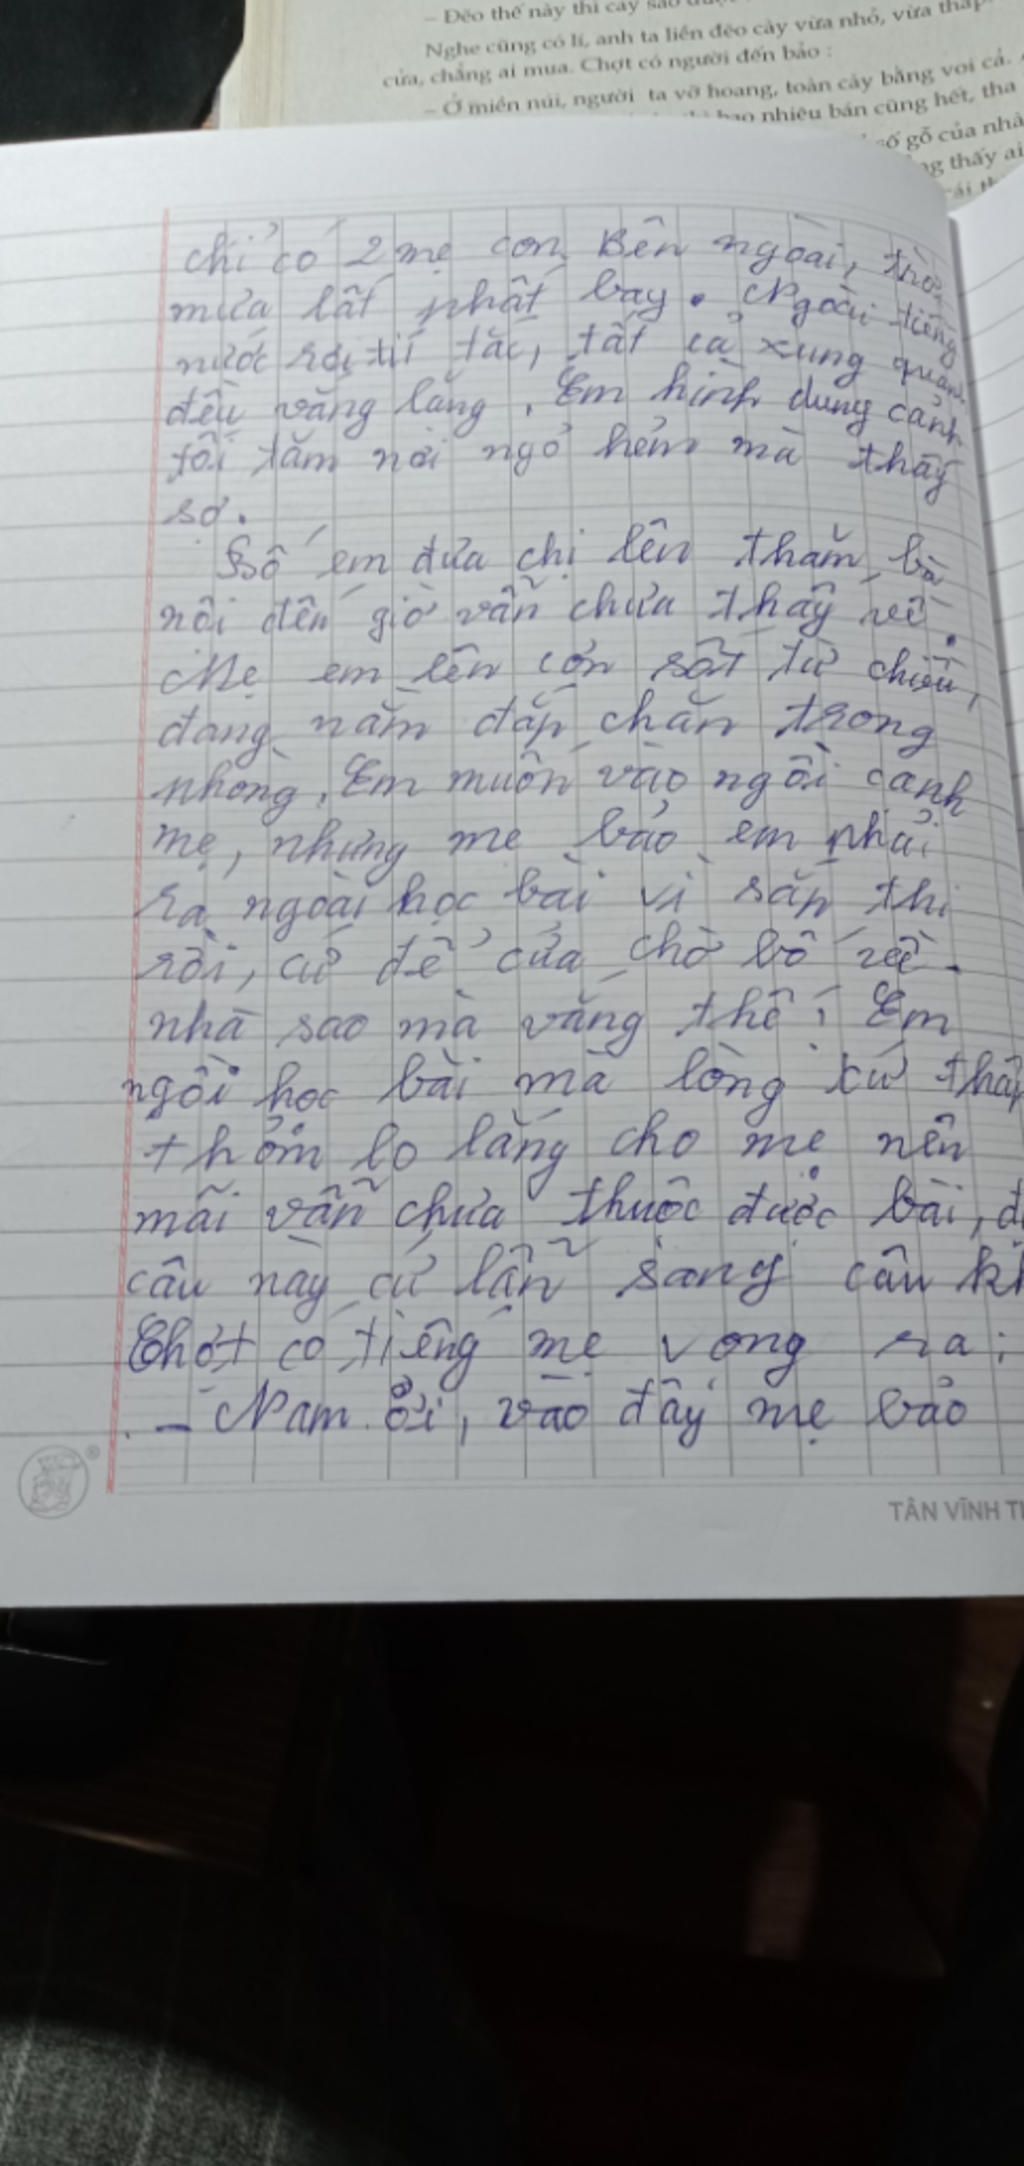 – Đẽo thế này thì cày sao
Nghe cũng có lí, anh ta liền đẽo cày vừa nhỏ, vừa thấp
cửa, chẳng ai mua. Chợt có người đến bảo :
– Ở miền núi, người ta vỡ hoang, toàn cày bằng voi cả.
bao nhiêu bán cũng hết, tha
số gỗ của nhà
thấy ai
chỉ có 2 mẹ con. Bên ngoài, trời
mưa lất phất bay. Ngoài tiếng
nước rơi tí tắc, tất cả xung quanh
đều vắng lặng. Em hình dung cảnh
tối tăm nơi ngõ hẻm mà thấy
sợ.
Bố em đưa chị lên thăm bà
nội đến giờ vẫn chưa thấy về.
Mẹ em lên cơn sốt từ chiều,
đang nằm đắp chăn trong
phòng. Em muốn vào ngồi cạnh
mẹ, nhưng mẹ bảo em phải
ra ngoài học bài vì sắp thi
rồi, cứ để cửa chờ bố về.
nhà sao mà vắng thế! Em
ngồi học bài mà lòng cứ thấp
thỏm lo lắng cho mẹ nên
mãi vẫn chưa thuộc được bài,
câu này cứ lẫn sang câu
Chợt có tiếng mẹ vọng ra:
– Nam ơi, vào đây mẹ bảo
TÂN VĨNH